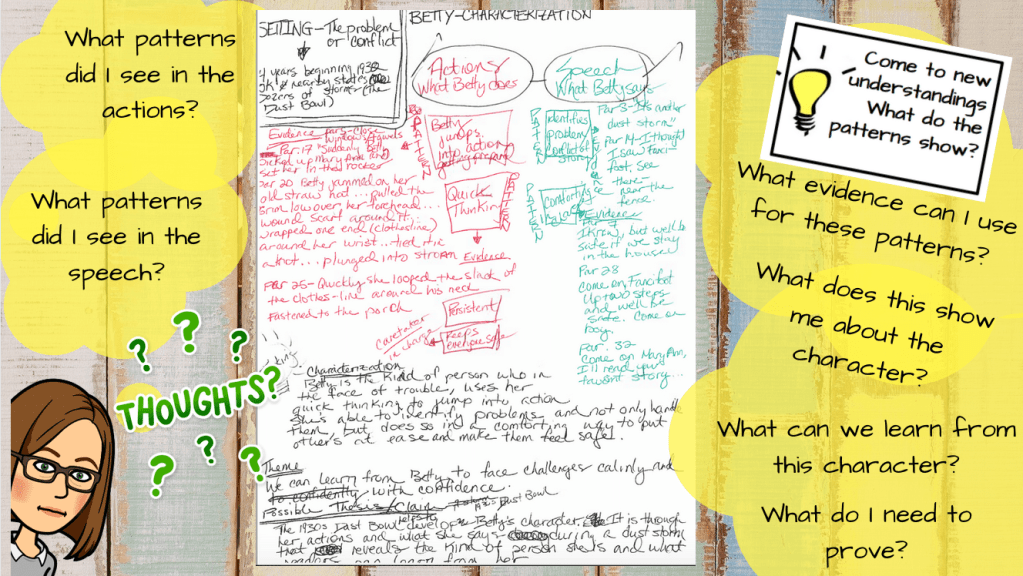 What patterns
did I see in the
actions?
What patterns
did I see in the
speech?
THOUGHTS?
SETTING - The problem
or conflict
4 years beginning 193
nearby states
Dozens of storms (the
Dust Bowl)
BETTY-CHARACTERIZATION
Actions
What Betty does
Speech
What Betty says
PATTERN
Betty
jumps
into action
getting prepared
Quick
Thinking
PATTERN
Evidence Par 3 - Close
windows, towels
Par. 17 "Suddenly Betty
picked up Mary Ann and
set her in the rocker
Par 20 Betty jammed on her
old straw hat... pulled the
brim low over her forehead...
wound scarf around it...
wrapped one end (clothesline)
around her wrist...tied it in
a knot... plunged into storm Evidence
Par 25 - Quickly she looped the slack of
the clothes-line around his neck
fastened to the porch
Persistent
Keeps
everyone safe
Caretaker
in charge
PATTERN
identifies
problem
conflict of
story
comforting
PATTERN
Par 3 - It's another
dust storm"
Par 14 - I thought
I saw Fanci-
foot. See
there-
near the
fence.
Evidence
I know, but we'll be
safe if we stay
in the house
Par 28
Come on, Fancifoot
Up two steps
and we'll be
safe. Come on
boy.
Par. 32
Come on Mary Ann,
I'll read your
favorit story...
Characterization
Betty is the kind of person who in
the face of trouble, uses her
quick thinking to jump into action
She's able to identify problems and not only handle
them, but does so in a comforting way to put
others at ease and make them feel safe.
Theme
We can learn from Betty to face challenges calmly and
to confidently with confidence.
Possible Thesis/Claim Dust Bowl
The 1930s Dust Bowl helps to develop Betty's character. It is through
her actions and what she says during a dust storm
that reveals the kind of person she is and what
readers can learn from her
Come to new
understandings
What do the
patterns show?
What evidence can I use
for these patterns?
What does this show
me about the
character?
What can we learn from
this character?
What do I need to
prove?